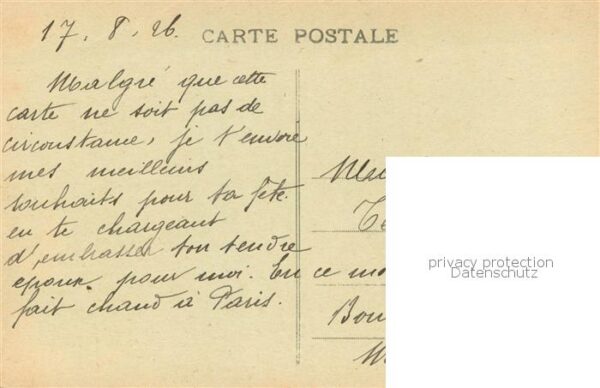 17. 8. 26.
CARTE POSTALE
Malgré que cette
carte ne soit pas de
circonstance, je t'envoie
mes meilleurs
souhaits pour ta fête.
en te chargeant
d'embrasser ton tendre
époux pour moi. En ce mo
fait chaud à Paris.
privacy protection
Datenschutz
Bou